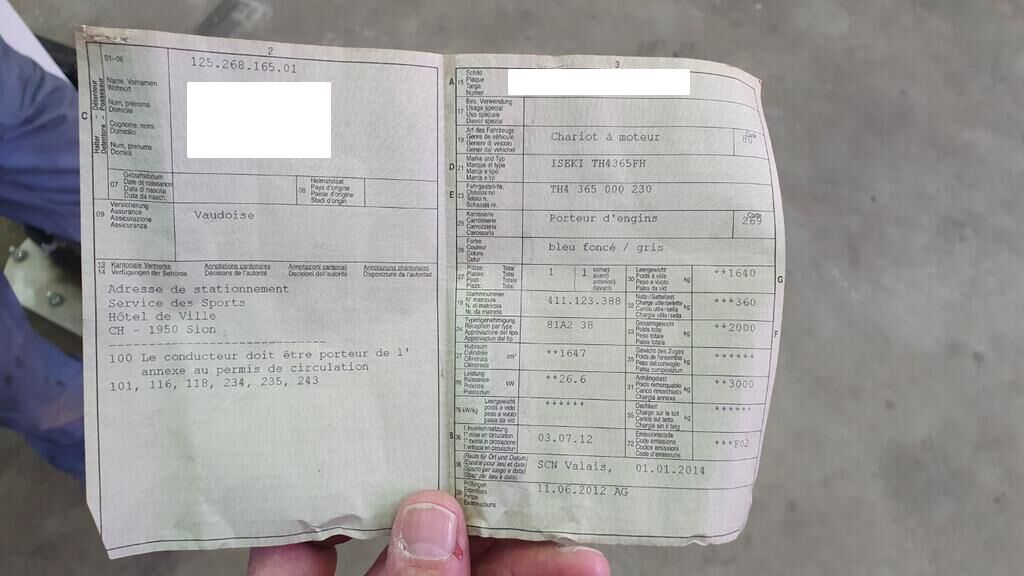 2
01-06
125.268.165.01
Detenteur
Possessur
C
Halter
Detentore
Name, Vornamen
Wohnort
Nom, prénoms
Domicile
Cognome, nomi
Domicilio
Num, prenums
Domicil
07
Geburtsdatum
Date de naissance
Data di nascita
Data da nasch.
08
Heimatstaat
Pays d'origine
Paese d'origine
Stadi d'origin
09
Versicherung
Assurance
Assicurazione
Assicuranza
Vaudoise
13 Kantonale Vermerke Annotations cantonales Annotazioni cantonali Annotaziuns chantunalas
14 Verfügungen der Behörde Décisions de l'autorité Decisioni dell'autorità Disposiziuns da l'autoritad
Adresse de stationnement
Service des Sports
Hôtel de Ville
CH - 1950 Sion
------------------------------
100 Le conducteur doit être porteur de l'
annexe au permis de circulation
101, 116, 118, 234, 235, 243
3
A 15
Schild
Plaque
Targa
Numer
17
Bes. Verwendung
Usage spécial
Uso speciale
Diever spezial
19
Art des Fahrzeugs
Genre de véhicule
Genere di veicolo
Gener dal vehichel
Chariot à moteur
Code
80
D 21
Marke und Typ
Marque et type
Marca e tipo
Marca e tip
ISEKI TH4365FH
E 23
Fahrgestell-Nr.
Châssis no
Telaio n.
Schassis nr.
TH4 365 000 230
25
Karosserie
Carrosserie
Carrozzeria
Carossaria
Porteur d'engins
Code
269
26
Farbe
Couleur
Colore
Colur
bleu foncé / gris
27
Plätze: Total
Places: Total
Posti: Totale
Plazs: Total
1
1
vorne)
avant)
anteriori)
davant)
30
Leergewicht
Poids à vide
Peso a vuoto
Paisa da vid
kg
**1640
G
18
Stammnummer
N° matricule
N. di matricola
Nr. da matricla
411.123.388
32
Nutz-/Sattellast
Charge utile/sellette
Carico utile/sella
Chargia utila/sella
kg
***360
24
Typengenehmigung
Réception par type
Approvazione del tipo
Approvaziun dal tip
8IA2 38
33
Gesamtgewicht
Poids total
Peso totale
Paisa totala
kg
**2000
F
37
Hubraum
Cylindrée
Cilindrata
Cilindrada
cm³
**1647
35
Gewicht des Zuges
Poids de l'ensemble
Peso del convoglio
Paisa cumposiziun
kg
******
76
Leistung
Puissance
Potenza
Prestaziun
kW
**26.6
31
Anhängelast
Poids remorquable
Carico rimorchiato
Chargia annexa
kg
**3000
78 kW/kg
Leergewicht
poids à vide
peso a vuoto
paisa da vid
******
55
Dachlast
Charge sur le toit
Carico sul tetto
Chargia sin il tetg
kg
******
B 36
1. Inverkehrsetzung
1re mise en circulation
1a messa in circolazione
1. entrada en circulaziun
03.07.12
72
Emissionscode
Code émissions
Codice emissioni
Code d'emissiuns
***E02
38
(Raum für Ort und Datum)
(Espace pour lieu et date)
(Spazio per luogo e data)
(Spazi per lieu e data)
SCN Valais, 01.01.2014
39
Prüfungen
Expertises
Perizie
Examinaziuns
11.06.2012 AG